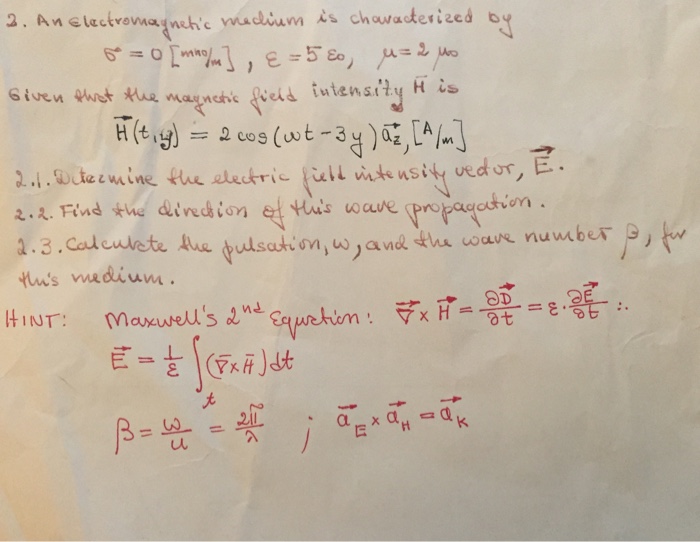 2. An electromagnetic medium is characterized by
σ = 0 [mho/m], ε = 5 ε₀, μ = 2 μ₀
Given that the magnetic field intensity H̄ is
H⃗(t,y) = 2 cos(ωt - 3y) a⃗z, [A/m]
2.1. Determine the electric field intensity vector, E⃗.
2.2. Find the direction of this wave propagation.
2.3. Calculate the pulsation, ω, and the wave number β, for
this medium.
HINT: Maxwell's 2nd Equation: ∇⃗ x H⃗ = ∂D⃗/∂t = ε · ∂E⃗/∂t ∴
E⃗ = 1/ε ∫t (∇̄ x H̄) dt
β = ω/u = 2π/λ ; a⃗E x a⃗H = a⃗K